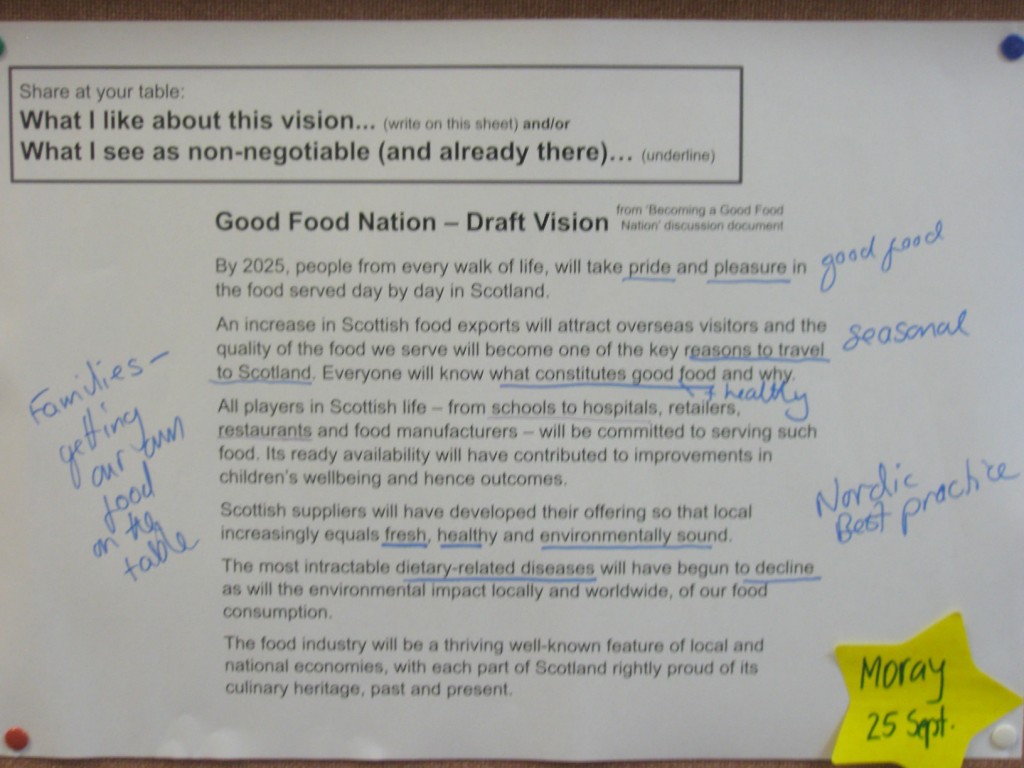 Share at your table:
What I like about this vision... (write on this sheet) and/or
What I see as non-negotiable (and already there)... (underline)
Good Food Nation – Draft Vision
from 'Becoming a Good Food
Nation' discussion document
By 2025, people from every walk of life, will take pride and pleasure in
the food served day by day in Scotland.
good food
An increase in Scottish food exports will attract overseas visitors and the
quality of the food we serve will become one of the key reasons to travel
to Scotland. Everyone will know what constitutes good food and why.
seasonal
+ healthy
All players in Scottish life – from schools to hospitals, retailers,
restaurants and food manufacturers – will be committed to serving such
food. Its ready availability will have contributed to improvements in
children's wellbeing and hence outcomes.
Families –
getting
our own
food
on the
table
Nordic
Best practice
Scottish suppliers will have developed their offering so that local
increasingly equals fresh, healthy and environmentally sound.
The most intractable dietary-related diseases will have begun to decline
as will the environmental impact locally and worldwide, of our food
consumption.
The food industry will be a thriving well-known feature of local and
national economies, with each part of Scotland rightly proud of its
culinary heritage, past and present.
Moray
25 Sept.